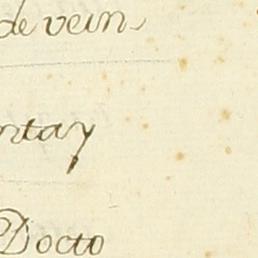 de vein
ntay
Docto